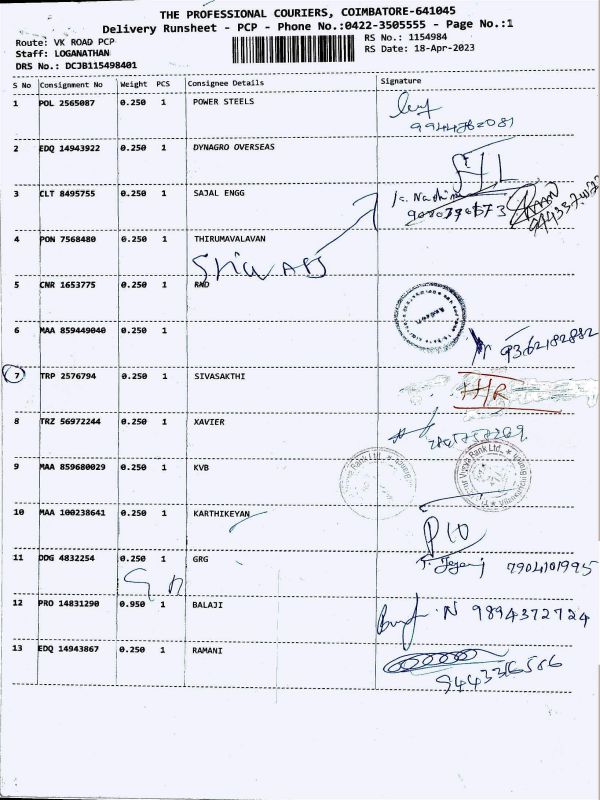 THE PROFESSIONAL COURIERS, COIMBATORE-641045
Delivery Runsheet - PCP - Phone No.:0422-3505555 - Page No.:1
Route: VK ROAD PCP
RS No.: 1154984
Staff: LOGANATHAN
RS Date: 18-Apr-2023
DRS No.: DCJB115498401
S No Consignment No Weight PCS Consignee Details Signature
1 POL 2565087 0.250 1 POWER STEELS
2 EDQ 14943922 0.250 1 DYNAGRO OVERSEAS
3 CLT 8495755 0.250 1 SAJAL ENGG
4 PON 7568480 0.250 1 THIRUMAVALAVAN
5 CNR 1653775 0.250 1 RND
6 MAA 859449040 0.250 1
9362182882
7 TRP 2576794 0.250 1 SIVASAKTHI
8 TRZ 56972244 0.250 1 XAVIER
9 MAA 859680029 0.250 1 KVB
10 MAA 100238641 0.250 1 KARTHIKEYAN
P10
11 DDG 4832254 0.250 1 GRG
7904101995
12 PRO 14831290 0.950 1 BALAJI
N 9894372724
13 EDQ 14943867 0.250 1 RAMANI
9443316586